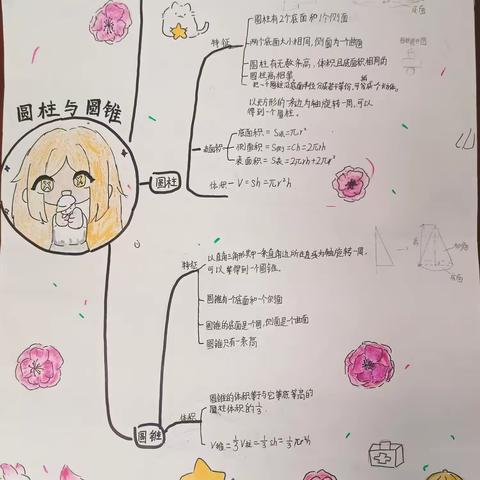 圆柱与圆锥
圆柱
特征
圆柱有2个底面和1个侧面
两个底面大小相同,侧面为一个曲面
圆柱有无数条高,体积且底面积相同的
圆柱高相等
以长方形的一条边为轴旋转一周,可以
得到一个圆柱。
表面积
底面积=S底=πr²
侧面积=S侧=Ch=2πrh
表面积=S表=2πrh+2πr²
体积-V=Sh=πr²h
圆锥
特征
以直角三角形其中一条直角边所在直线为轴旋转一周,
可以得到一个圆锥。
圆锥有一个底面和一个侧面
圆锥的底面是一个圆,侧面是一个曲面
圆锥只有一条高
体积
圆锥的体积等于与它等底等高的
圆柱体积的1/3.
V锥=1/3V柱=1/3Sh=1/3πr²h
底面